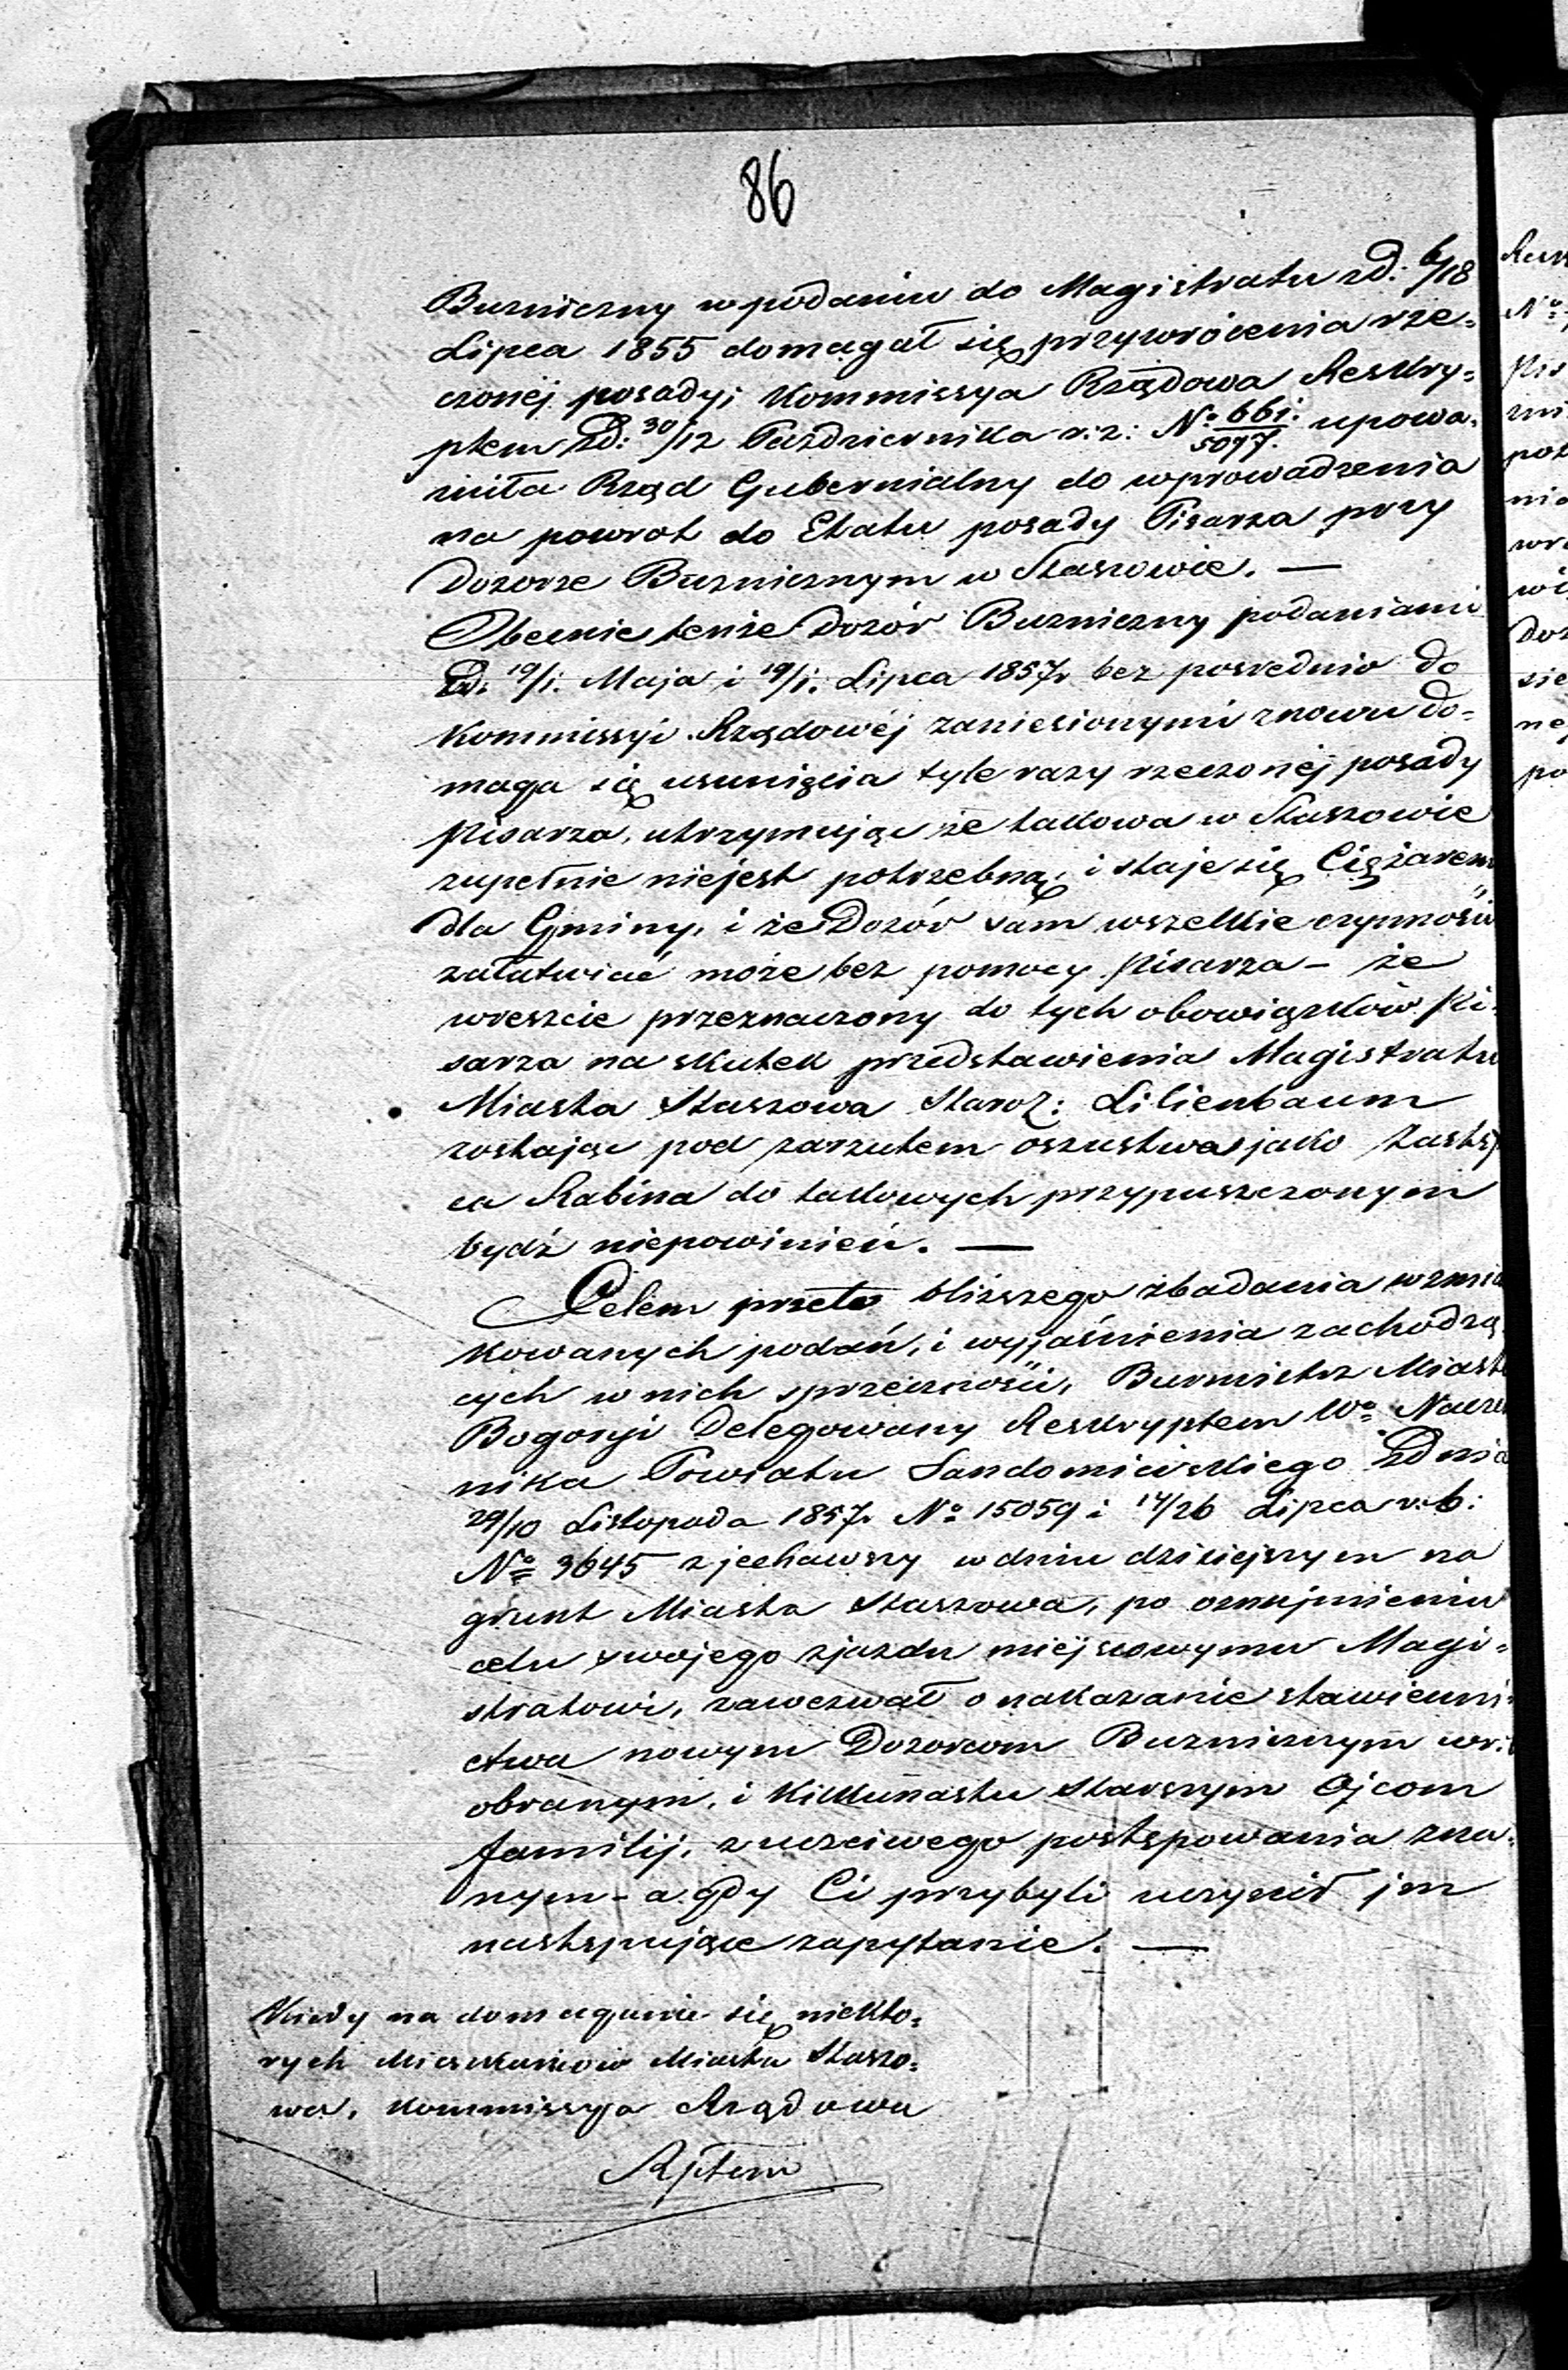 86
Buzniczny w podaniu do Magistratu zd: 6/18
Lipca 1855 domagał się przywrócenia rze=
czonéj posady; Kommissya Rządowa Reskry=
ptem Zd: 30/12 Pazdziernika r: z: No 661/5077. upowa=
żniła Rząd Gubernialny do wprowadzenia
na powrot do Etatu posady Pisarza przy
Dozorze Buznicznym w Staszowie. —
Obecnie tenże Dozór Buzniczny podaniami
Zd: 19/1. Maja i 19/1. Lipca 1857r bez posrednio do
Kommissyi Rządowéj zaniesionymi znowu do=
maga się usunięcia tyle razy rzeczonéj posady
Pisarza, utrzymując że takowa w Staszowie
zupełnie niejest potrzebną, i staje się Ciężarem
dla Gminy, i że Dozór sam wszelkie czynności
załatwiać może bez pomocy Pisarza – że
wreszcie przeznaczony do tych obowiązków Pi=
sarza na skutek przedstawienia Magistratu
Miasta Staszowa Staroz: Lilienbaum
zostając pod zarzutem oszustwa jako Zastę
ca Rabina do takowych przypuszczonym
bydź niepowinień. —
Celem przeto bliższego zbadania wzmia
kowanych podań, i wyjaśnienia zachodzą
cych w nich sprzeczności, Burmistrz Miasta
Bogoryi Delegowany Reskryptem Wo Naczel
nika Powiatu Sandomierskiego Zdnia
29/10 Listopada 1857r No 15059 i 14/26 Lipca r: b:
No 3645 zjechawszy w dniu dzisiejszym na
grunt Miasta Staszowa, po oznajmieniu
celu swojego zjazdu miejscowymu Magi=
stratowi, zawezwał o nakazanie stawienni
ctwa nowym Dozorcom Buznicznym
obranym, i Kilkunastu Starszym Ojcom
familij, z uczciwego postępowania zna=
nym – a gdy Ci przybyli uczynił jm
następujące zapytanie. —
Kiedy na domaganie się niektó=
rych Mieszkańców Miasta Staszo=
wa, Kommissya Rządowa
Rptem